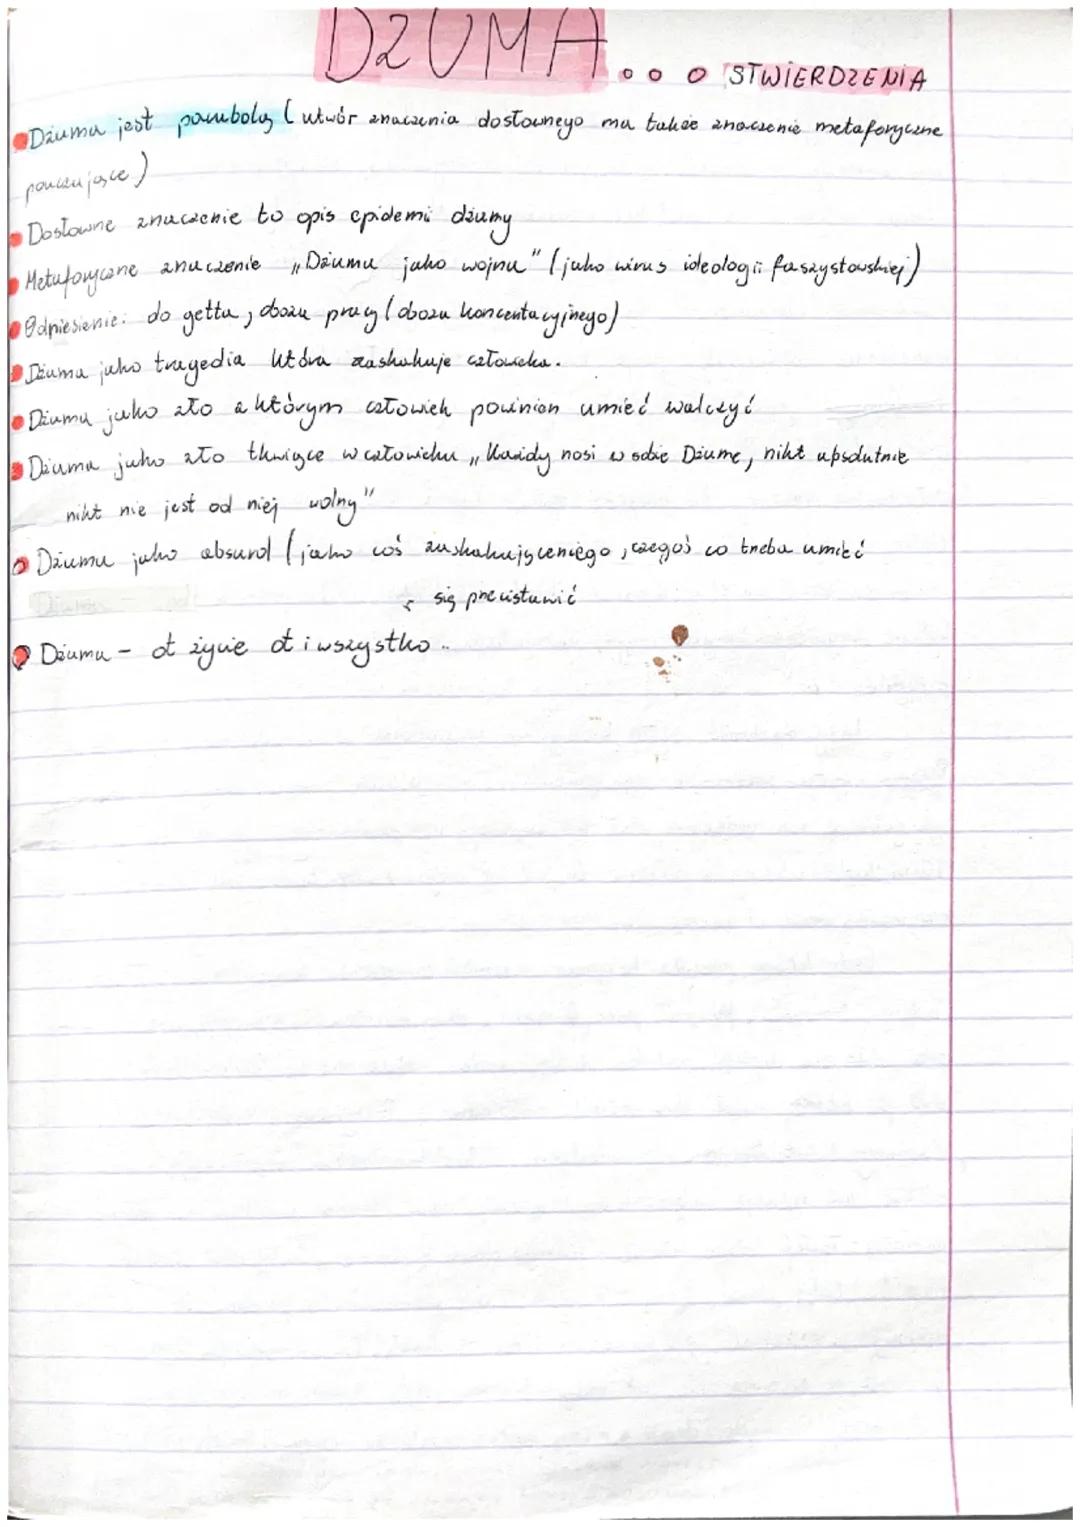 DŻUMA... STWIERDZENIA
Dżuma jest parabolą (utwór znaczenia dosłownego ma także znaczenie metaforyczne
pouczające)
Dosłowne znaczenie to opis epidemi dżumy
Metaforyczne znaczenie „Dżuma jako wojna" (jako wirus ideologii faszystowskiej)
Odniesienie: do getta, obozu pracy (obozu koncentacyjnego)
Dżuma jako tragedia która zaskakuje człowieka.
Dżuma jako zło z którym człowiek powinien umieć walczyć
Dżuma jako zło tkwiące w człowieku „Każdy nosi w sobie Dżumę, nikt apsolutnie
nikt nie jest od niej wolny"
Dżuma jako absurd (jako coś zaskakującego, czegoś co trzeba umieć
się przeistawić
Dżuma - ot życie ot i wszystko..